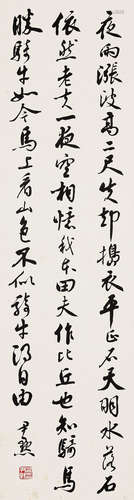 夜雨漲波高二尺失却搗衣平正石天明水落石
依然老夫一夜空相憶我本田夫作比丘也知騎馬
勝騎牛如今馬上看山色不似騎牛得自由
尹默